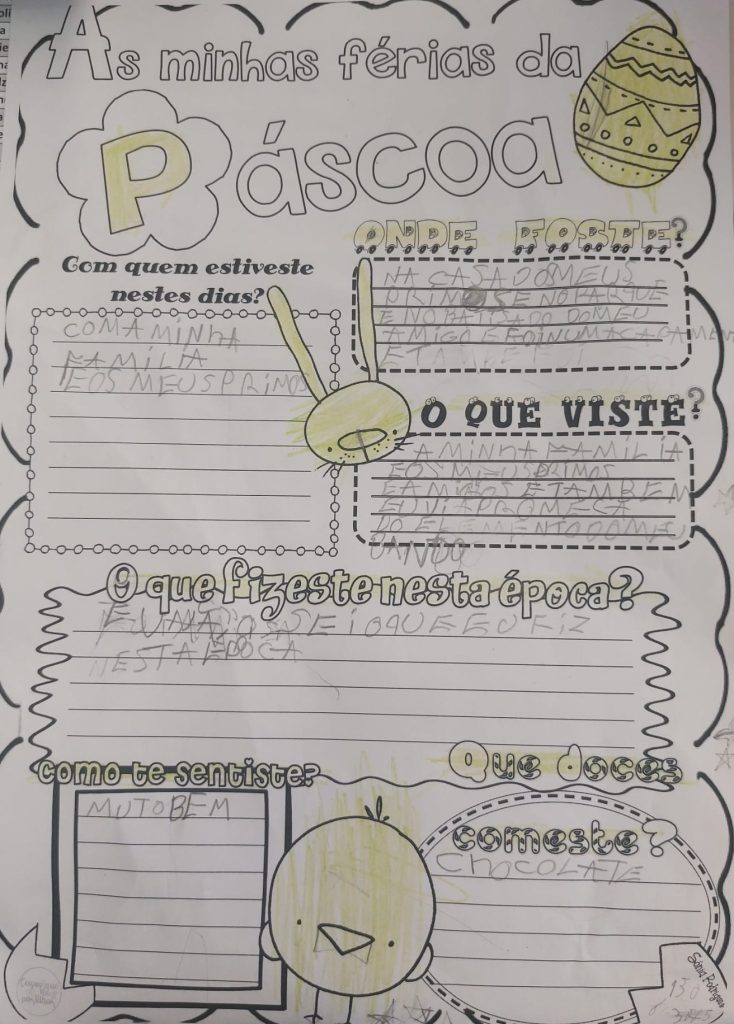 As minhas férias da
Páscoa
Com quem estiveste
nestes dias?
COM A MINHA
FAMÍLIA
E OS MEUS PRIMOS
ONDE FOSTE?
NA CASA DO MEUS
PRIMOS E NO PARQUE
E NO BATIZADO DO MEU
AMIGO E FOI NUM ACAPAMEN
E TA
O QUE VISTE?
A MINHA FAMILIA
E OS MEUS PRIMOS
E AMIGOS E TAMBEM
EU VI A PROMEÇA
DO ELEMENTO DO MEU
BANDO
O que fizeste nesta época?
EU NÃO SEI O QUE EU FIZ
NESTA ÉPOCA
Como te sentiste?
MUTO BEM
Que doces
comeste?
CHOCOLATE
Sónia Rodrigues